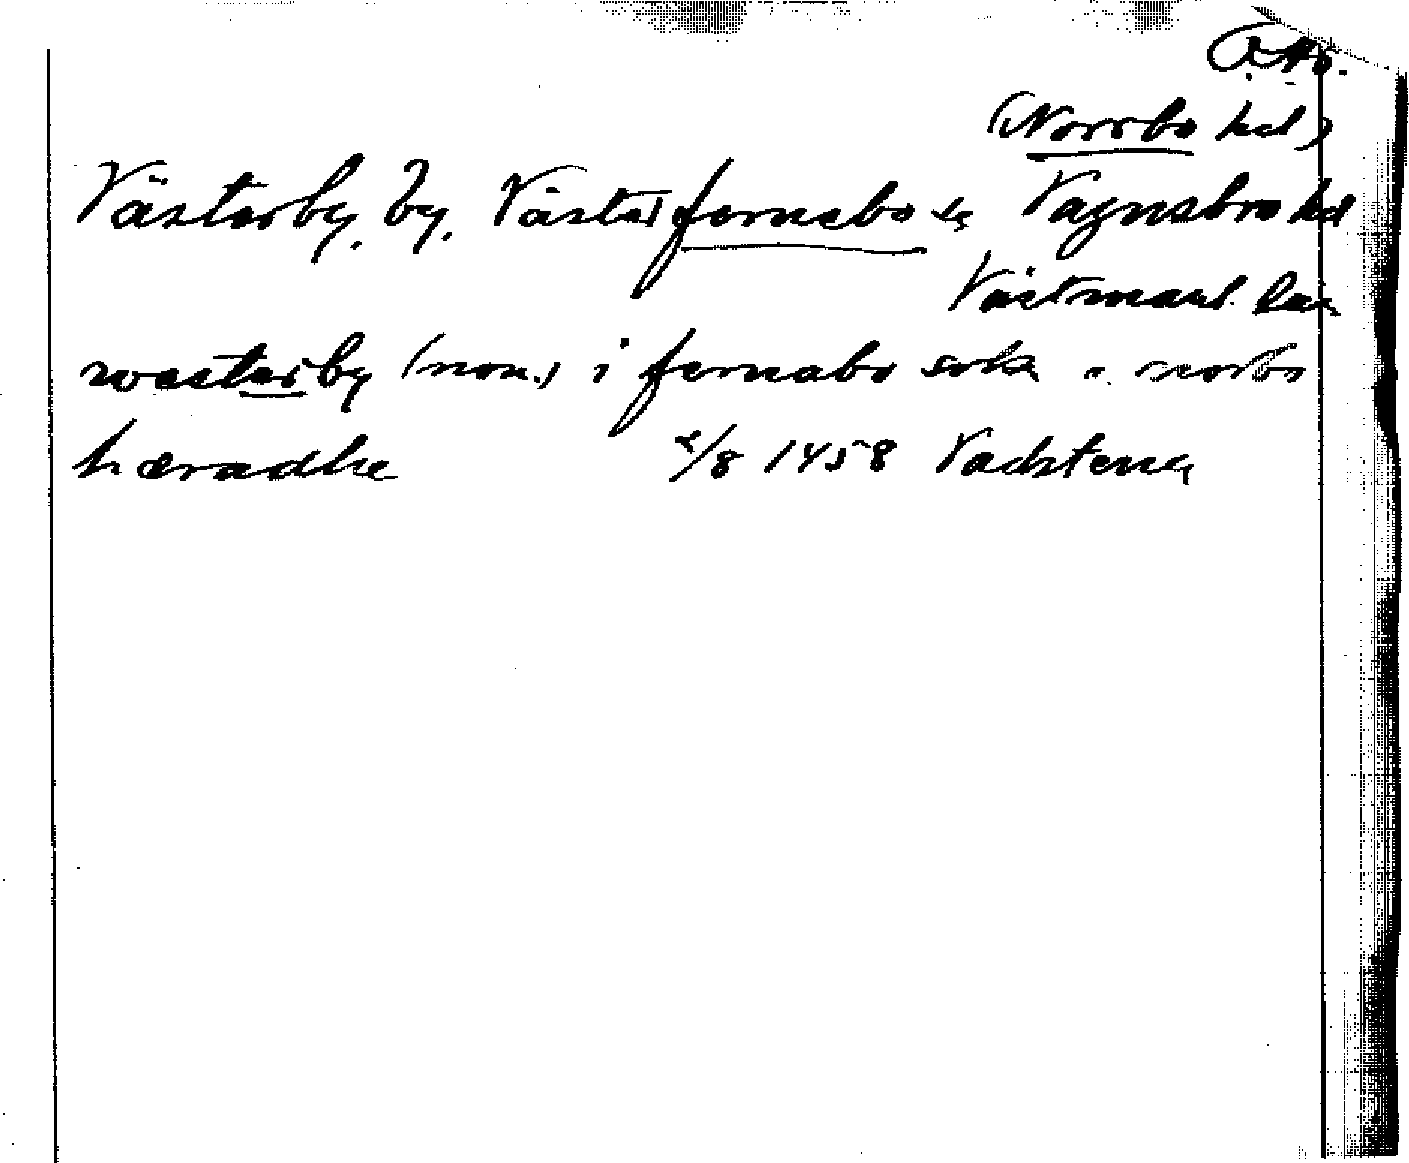 (Norrbo hd)
Västerby, by, Västerfernebo sn Vagnsbro hd
Västmanl. län
wasterby (nom.) i fernabo sokn norbo
hæradhe /8 1458 Vadstena